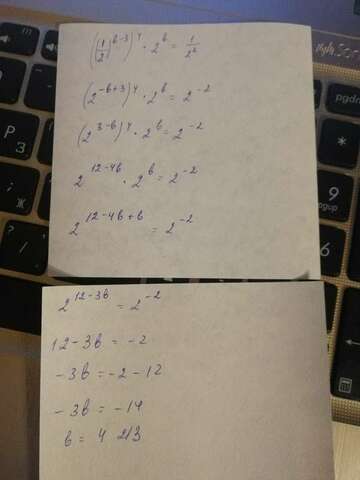 ((1/2)^(b-3))^4 · 2^b = 1/2^2
(2^(-b+3))^4 · 2^b = 2^(-2)
(2^(3-b))^4 · 2^b = 2^(-2)
2^(12-4b) · 2^b = 2^(-2)
2^(12-4b+b) = 2^(-2)
2^(12-3b) = 2^(-2)
12-3b = -2
-3b = -2-12
-3b = -14
b = 4 2/3
pgup
9
3
pgdn
Ж